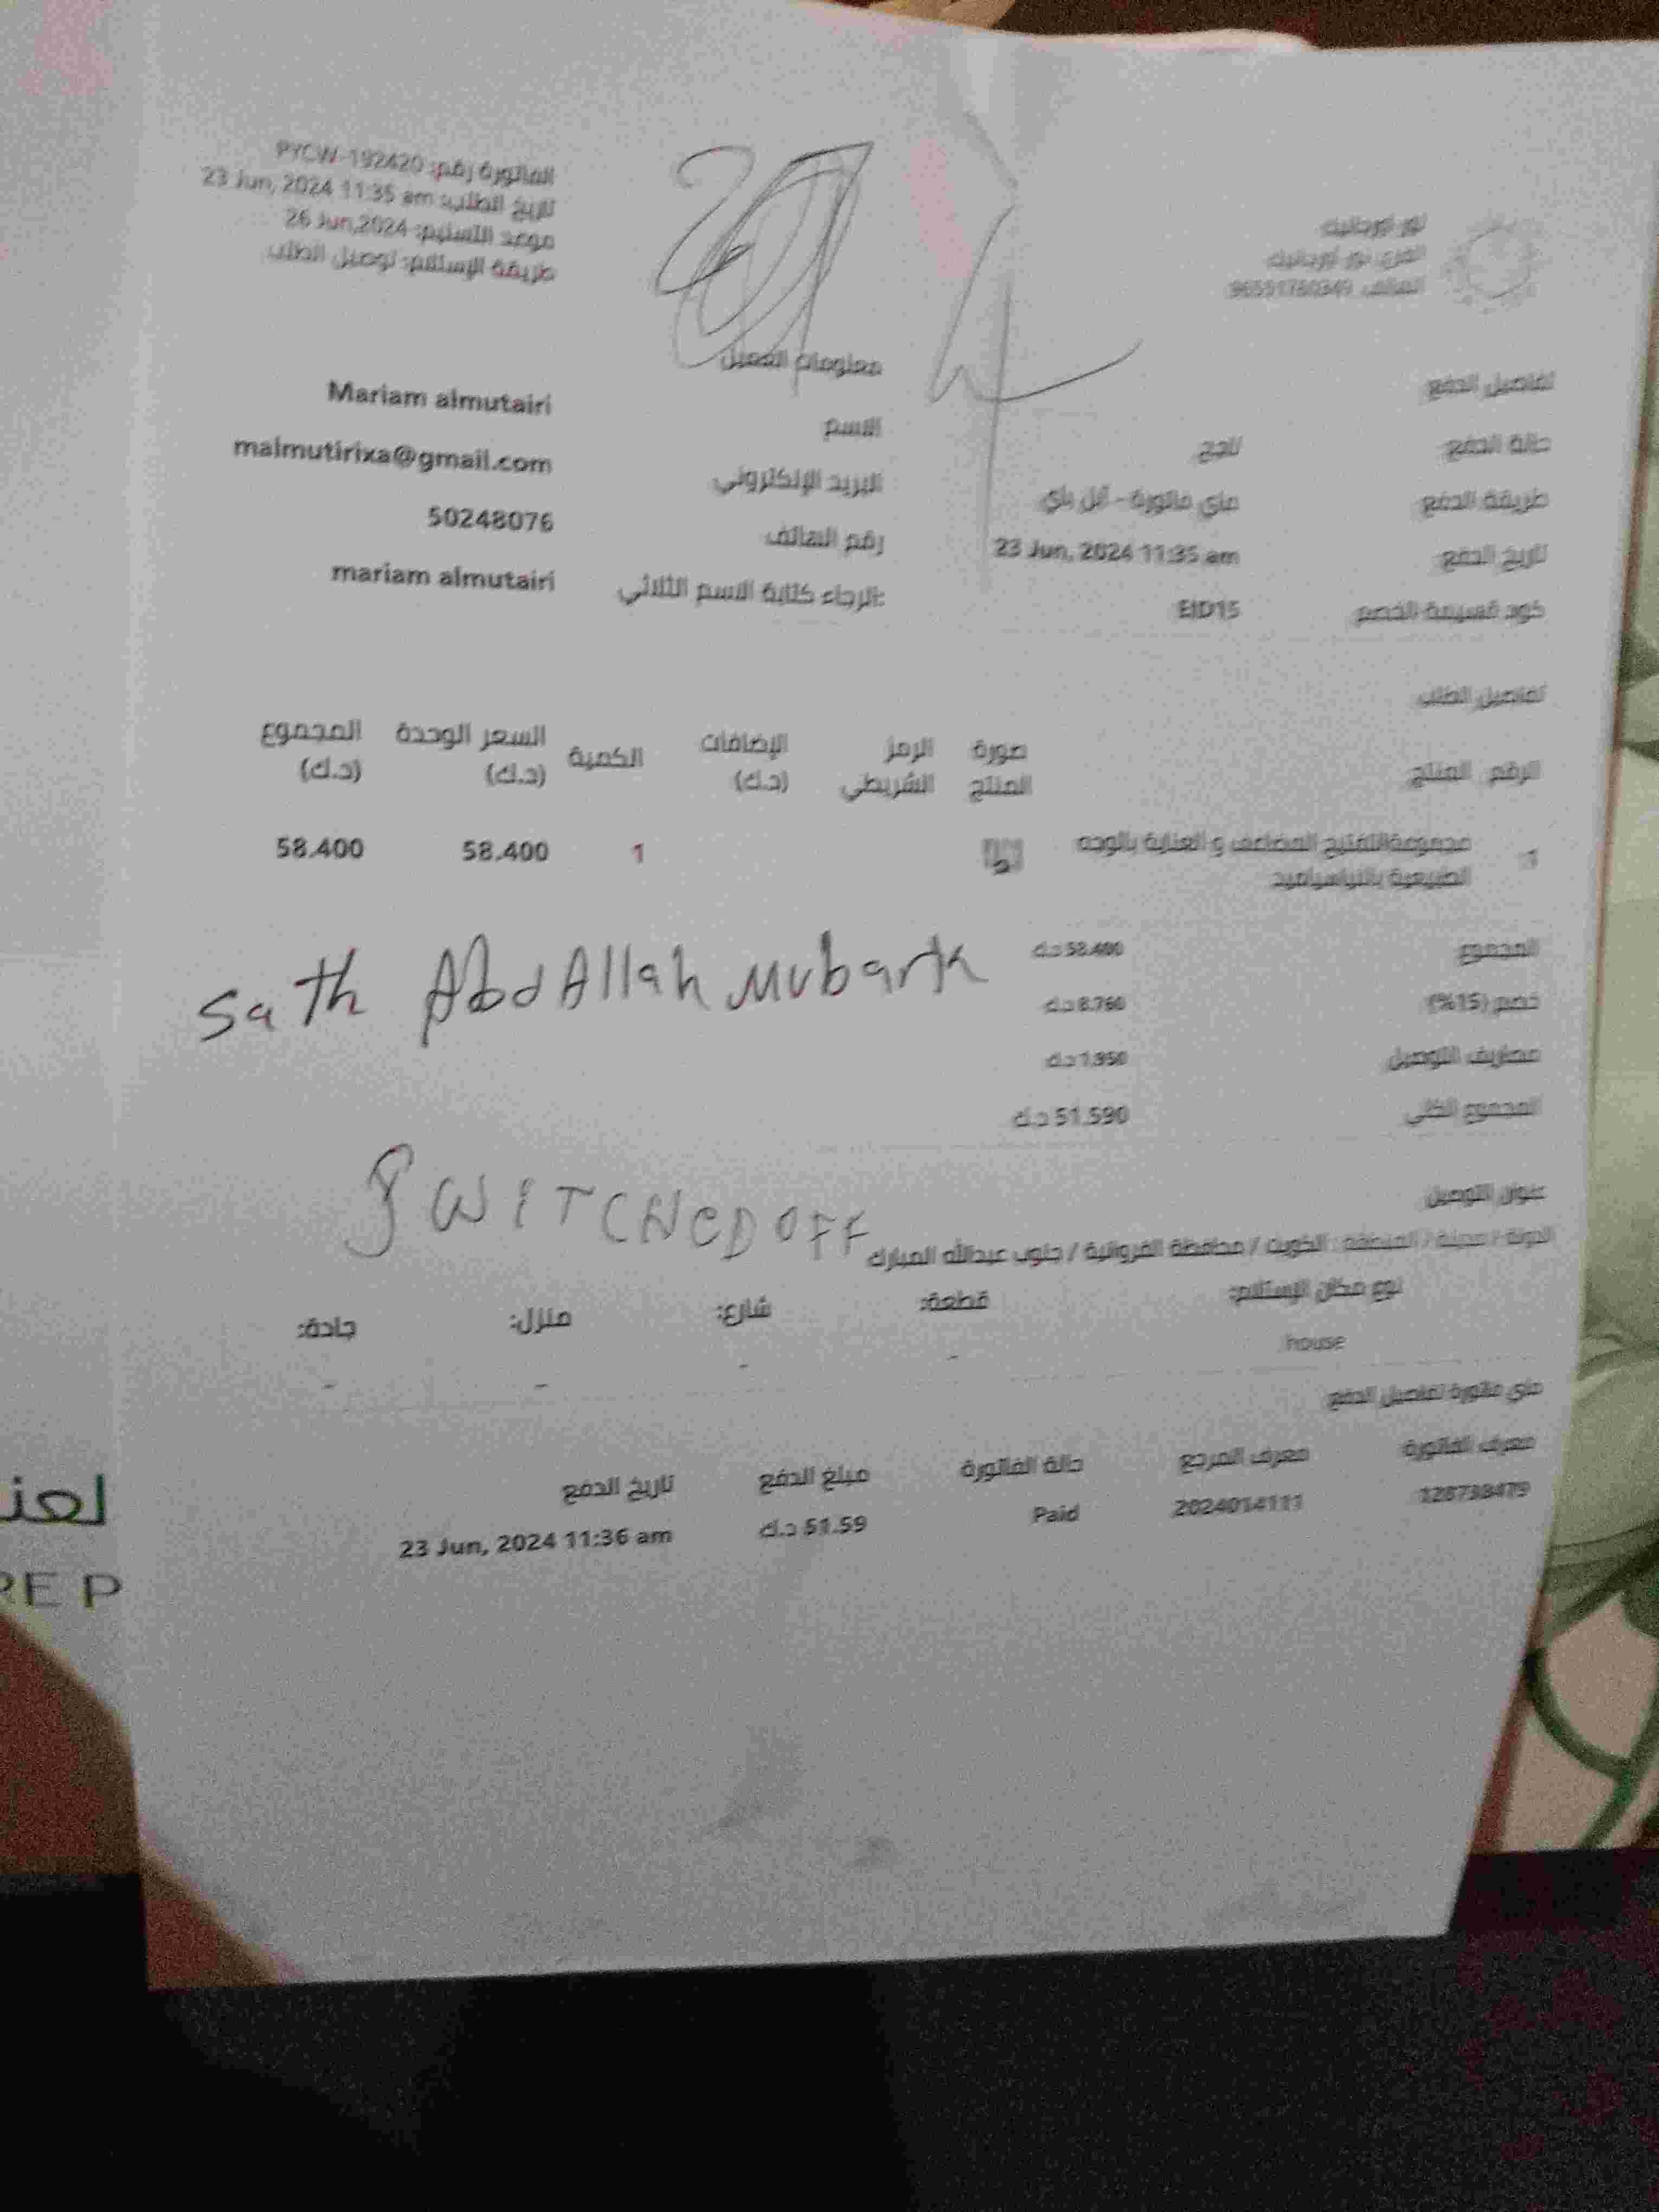 الفاتورة رقم: PYCW-192420
تاريخ الطلب: 23 Jun, 2024 11:35 am
موعد التسليم: 26 Jun,2024
طريقة الإستلام: توصيل الطلب
نور أورجانيك
الفرع: نور أورجانيك
الهاتف: 96551760349
معلومات العميل
الاسم Mariam almutairi
البريد الإلكتروني malmutirixa@gmail.com
رقم الهاتف 50248076
الرجاء كتابة الاسم الثلاثي: mariam almutairi
تفاصيل الدفع
حالة الدفع ناجح
طريقة الدفع ماي فاتورة - أبل باي
تاريخ الدفع 23 Jun, 2024 11:35 am
كود قسيمة الخصم EID15
تفاصيل الطلب
الرقم المنتج صورة المنتج الرمز الشريطي الإضافات (د.ك) الكمية السعر الوحدة (د.ك) المجموع (د.ك)
1 مجموعةالتفتيح المضاعف و العناية بالوجه 1 58.400 58.400
الطبيعية بالنياسيناميد
المجموع 58.400 د.ك
خصم (15%) 8.760 د.ك
مصاريف التوصيل 1.950 د.ك
المجموع الكلي 51.590 د.ك
Sath AbdAllah Mubark
SWITCHED OFF
عنوان التوصيل
الدولة / مدينة / المنطقة : الكويت / محافظة الفروانية / جنوب عبدالله المبارك
نوع مكان الإستلام: قطعة: شارع: منزل: جادة:
house - - - -
ماي فاتورة تفاصيل الدفع
معرف الفاتورة معرف المرجع حالة الفاتورة مبلغ الدفع تاريخ الدفع
2024014111 Paid 51.59 د.ك 23 Jun, 2024 11:36 am
لعنـ
RE P